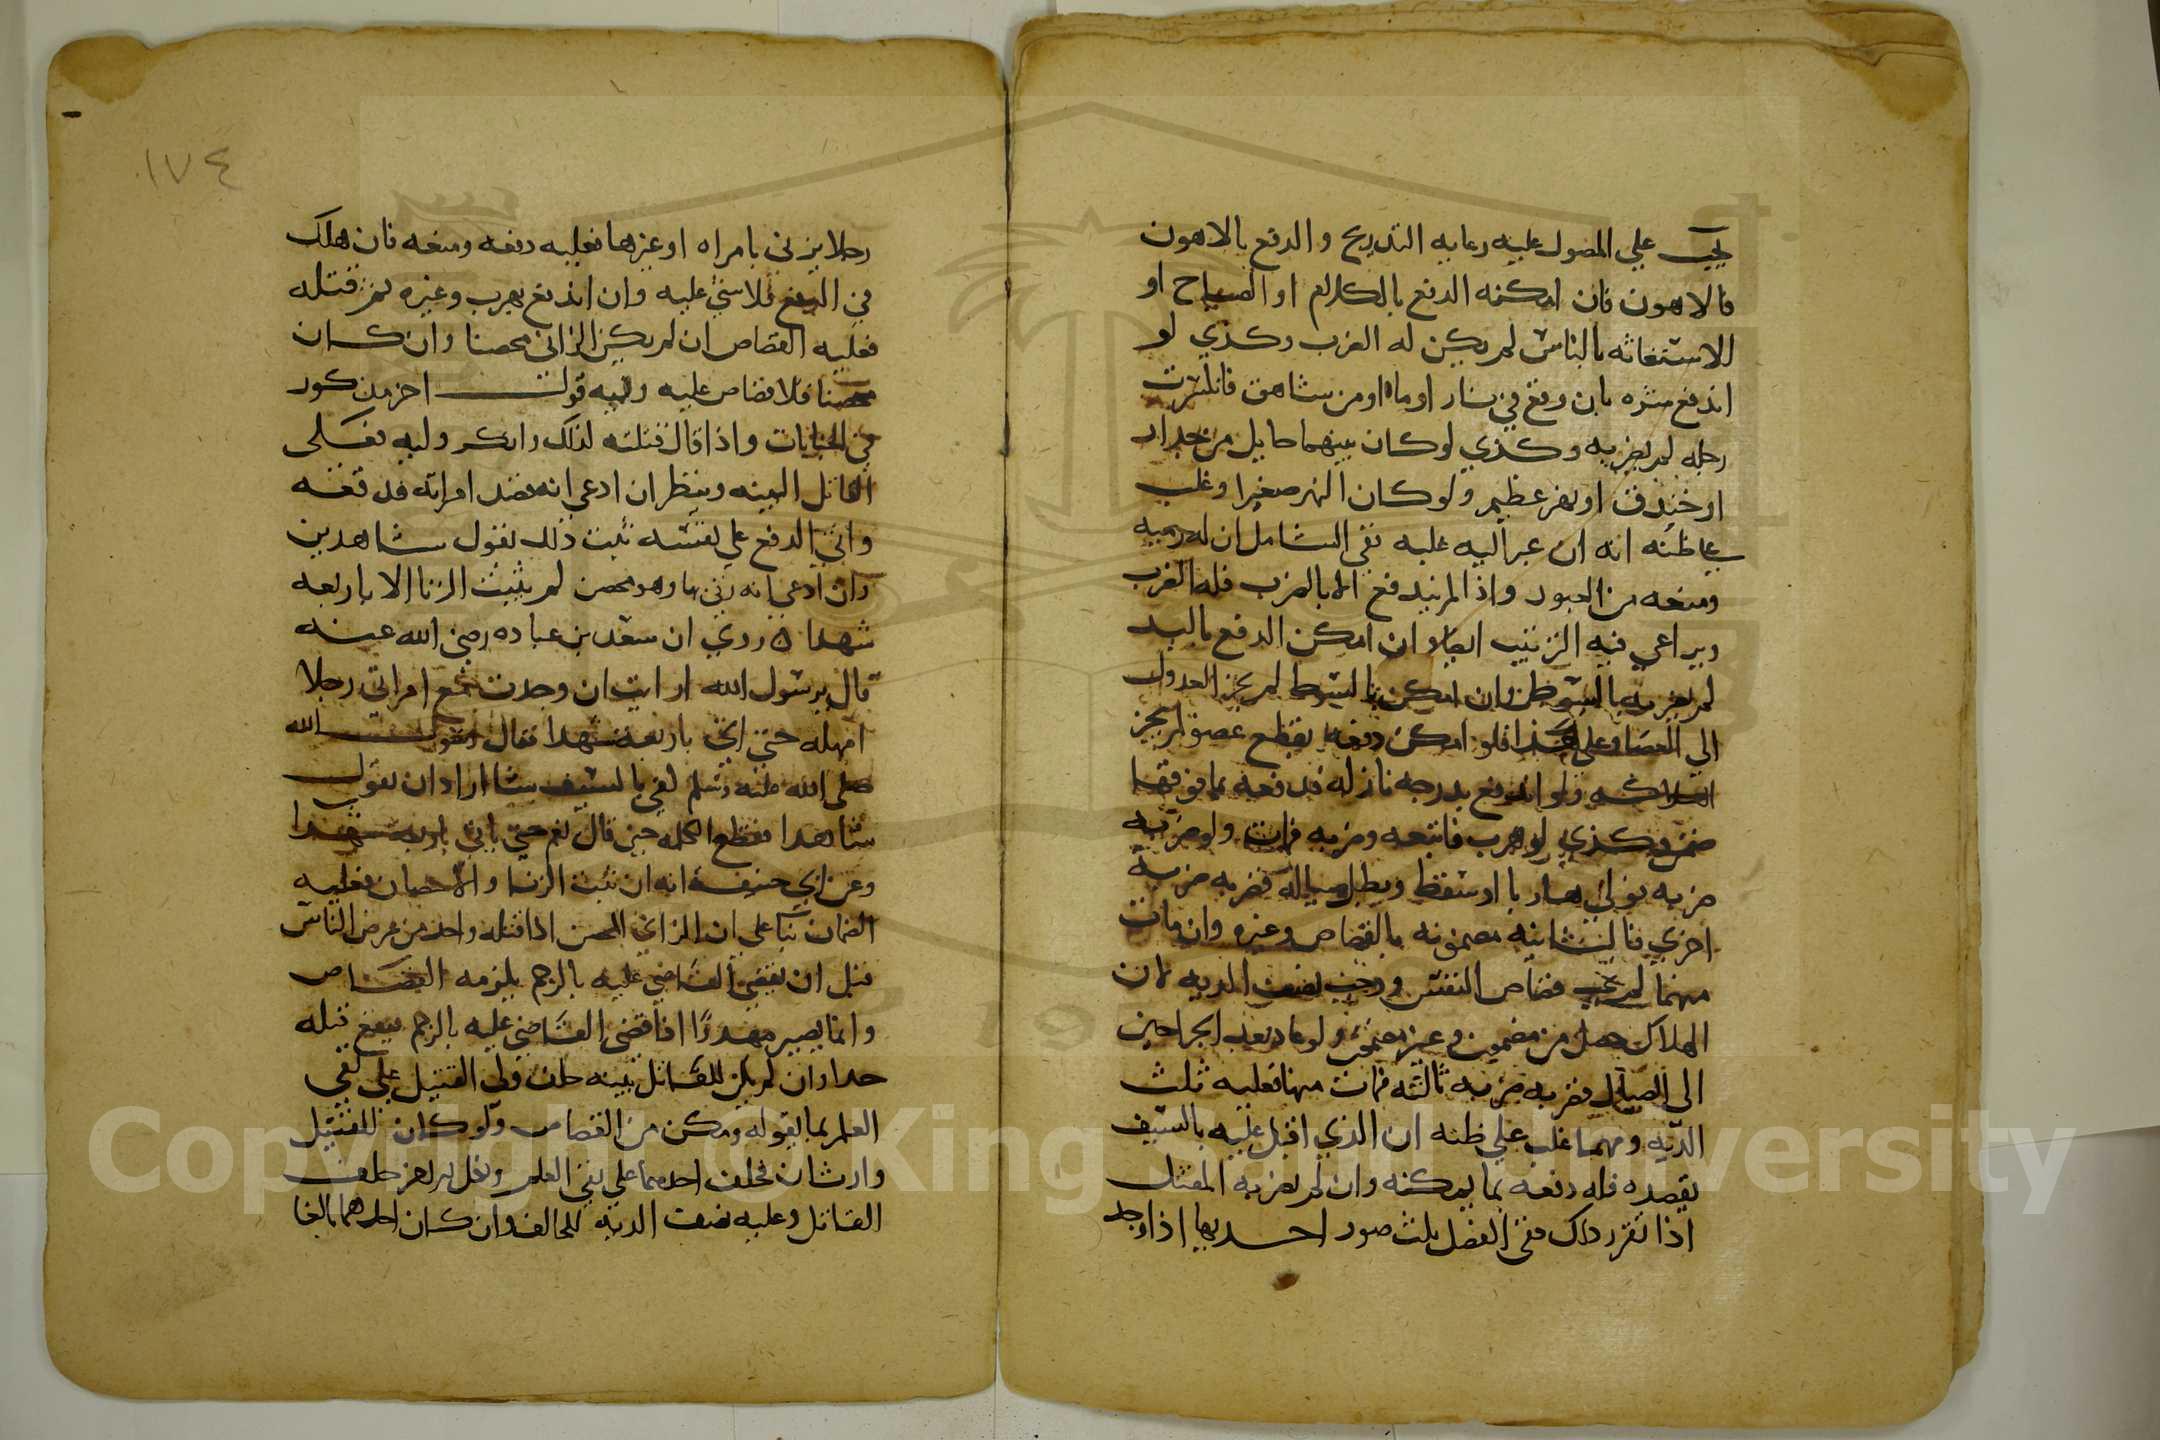 يجب علي المصول عليه رعايه التدريج والدفع بالاهون
فالاهون فان امكنه الدفع بالكلام او الصياح او
الاستغاثه بالناس لم يكن له الضرب وكذي لو
اندفع شره بان وقع في نار او ماء او من شاهق فانكسرت
رجله لم يضربه وكذي لو كان بينهما حايل من جدار
او خندق او نهر عظيم ولو كان النهر صغيرا وغلب
علي ظنه انه ان عبر اليه غلبه ففي الشامل ان له رميه
ومنعه من العبور واذا لم يندفع الا بالضرب فله الضرب
ويراعي فيه الترتيب ايضا وان امكن الدفع باليد
لم يضربه بالسوط وان امكن بالسوط لم يجز العدول
الي العصا وعلي هذا فلو امكن دفعه بقطع عضو لم يجز
اهلاكه ولو اندفع بدرجه نازله فدفعه بما فوقها
ضمن وكذي لو هرب فاتبعه وضربه فمات ولو ضربه
ضربه فولي هاربا او سقط وبطل صياله فضربه ضربة
اخري فالثانيه مضمونه بالقصاص وغيره وان مات
منهما لم يجب قصاص النفس ووجب نصف الديه لان
الهلاك حصل من مضمون وغير مضمون ولو عاد بعد الجراحين
الي الصيال فضربه ضربه ثالثه فمات منها فعليه ثلث
الديه ومهما غلب علي ظنه ان الذي اقبل عليه بالسيف
يقصده فله دفعه بما يمكنه وان لم يضربه المقبل
اذا تقرر ذلك ففي الفصل ثلث صور احديها اذا وجد
١٧٤
رجلا يزني بامراه او غيرها فعليه دفعه ومنعه فان هلك
في الدفع فلا شي عليه وان اندفع بهرب وغيره ثم قتله
فعليه القصاص ان لم يكن الزاني محصنا وان كان
محصنا فلا قصاص عليه وفيه قول اخر مذكور
في الجنايات واذا قال قتلته لذلك وانكر وليه فعلي
القاتل البينه وينظر ان ادعي انه قصد امراته فدفعه
واتي الدفع علي نفسه ثبت ذلك بقول شاهدين
وان ادعي انه زني بها وهو محصن لم يثبت الزنا الا باربعه
شهدا ه روي ان سعد بن عباده رضي الله عنه
قال يرسول الله ارايت ان وجدت مع امراتي رجلا
امهله حتي اتي باربعه شهدا فقال رسول الله
صلي الله عليه وسلم كفي بالسيف شا اراد ان يقول
شاهدا فقطع الكلمه حين قال نعم حتي ياتي باربعه شهدا
وعن ابي حنيفه انه ان ثبت الزنا والاحصان فعليه
الضمان بنا علي ان الزاني المحصن اذا قتله واحد من عرض الناس
قبل ان يقضي القاضي عليه بالرجم يلزمه القصاص
وانما يصير مهدرا اذا قضي القاضي عليه بالرجم فيقع قتله
حدا وان لم يكن للقاتل بينه حلف ولي القتيل علي نفي
العلم بما يقوله ومكن من القصاص ولو كان للقتيل
وارثان فحلف احدهما علي نفي العلم ونكل الاخر حلف
القاتل وعليه نصف الديه للحالف وان كان احدهما بالغا